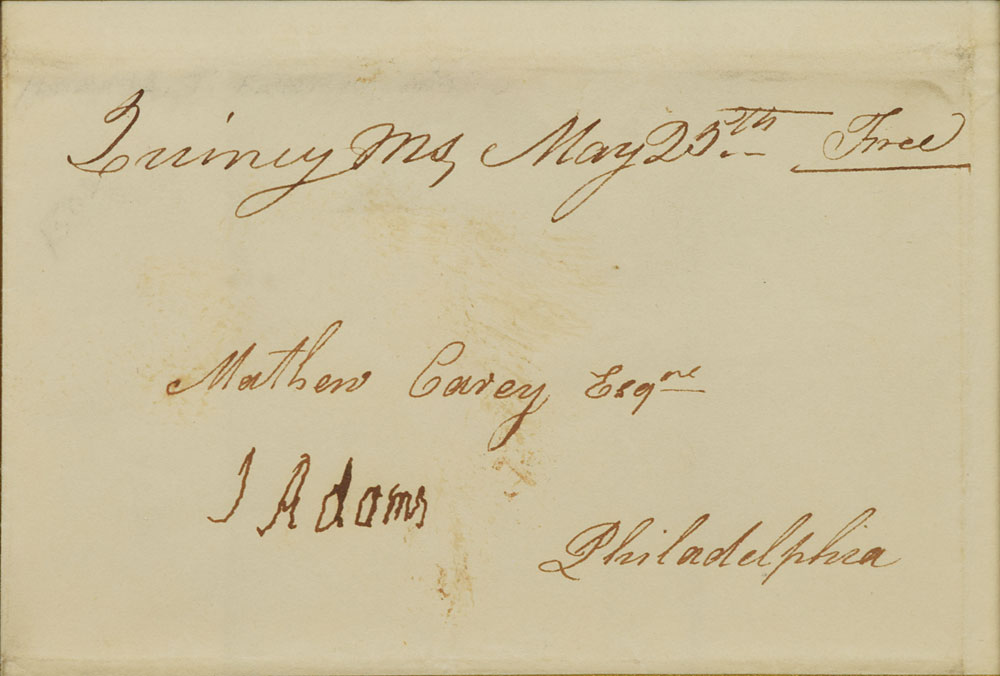 Quincy Ms, May 25th Free
Mathew Carey Esqre
J Adams
Philadelphia